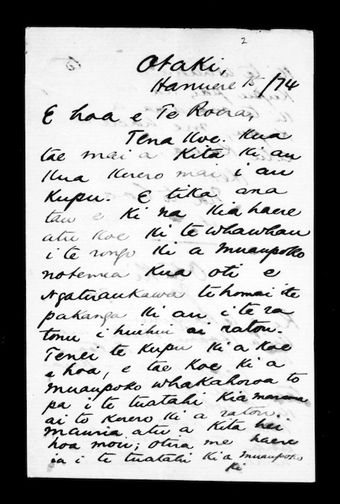 2
Otaki,
Hanuere 15/74
E hoa e Te Rotera,
Tena Koe. Kua
tae mai a Kita ki au
Kua Korero mai i au
Kupu. E tika ana
tau e ki na kia haere
atu koe ki te whawhau
i te rongo ki a muaupoko
notemea kua oti e
Ngatiraukawa te homai te
pakanga ki au i te ra
tonu i huihui ai ratou.
Tenei te kupu ki a koe
e hoa, e tae koe ki a
muaupoko whakahoroa to
pa i te tuatahi kia marama
ai to korero ki a ratou.
mauria atu a Kita hei
hoa mou; otira me haere
ia i te tuatahi ki a muaupoko
ki